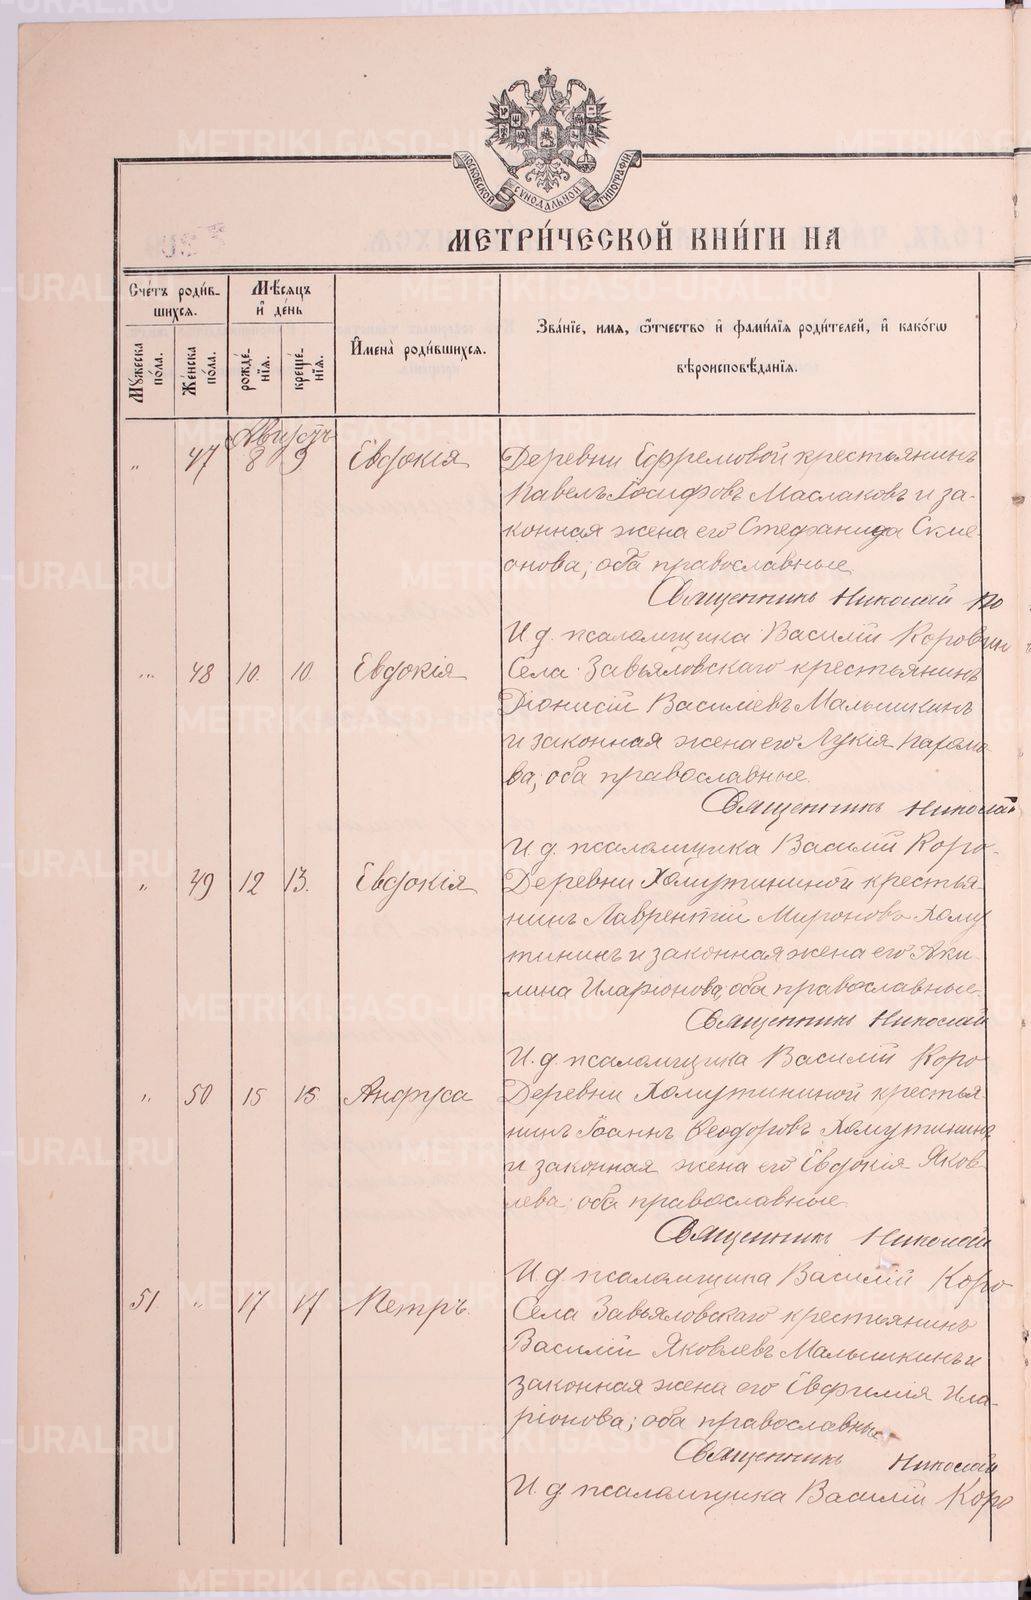 МОСКОВСКОЙ СѴНОДАЛЬНОЙ ТИПОГРАФІИ
МЕТРИ́ЧЕСКОЙ КНИ́ГИ НА
Сче́тъ роди́в-
шихся.
Мѣ́сяцъ
и де́нь
Имена̀ роди́вшихся.
Зва́нїе, имя, ѻ҆́тчество и фами́лїя роди́телей, и како́гѡ
вѣроисповѣ́данїя.
Мꙋ́жеска
по́ла.
Же́нска
по́ла.
рожде́-
нїя.
креще́-
нїя.
Августъ
„ 47 8 9 Евдокія Деревни Ефремовой крестьянинъ
Павелъ Іосифовъ Маслаковъ и за-
конная жена его Стефанида Симе-
онова; оба православные
Священникъ Николай По
И. д. псаломщика Василій Коровин
„ 48 10. 10. Евдокія Села Завьяловскаго крестьянинъ
Діонисій Василіевъ Малышкинъ
и законная жена его Лукія
ва; оба православные.
Священникъ Николай
И. д. псаломщика Василій Коро-
„ 49 12 13. Евдокія Деревни Хомутининой крестья-
нинъ Лаврентій Мироновъ Хому
тининъ и законная жена его Аки-
лина Иларіонова, оба православные.
Священникъ Николай
И. д. псаломщика Василій Коро
„ 50 15 15 Анфуса Деревни Хомутининой крестья-
нинъ Іоаннъ Ѳеодоровъ Хомутининъ
и законная жена его Евдокія Яков-
лева; оба православные.
Священникъ Николай
И. д. псаломщика Василій Коро
51. „ 17 17 Петръ. Села Завьяловскаго крестьянинъ
Василій Яковлевъ Малышкинъ и
законная жена его Евфимія Ила-
ріонова; оба православные
Священникъ Николай
И. д. псаломщика Василій Коро
METRIKI.GASO-URAL.RU